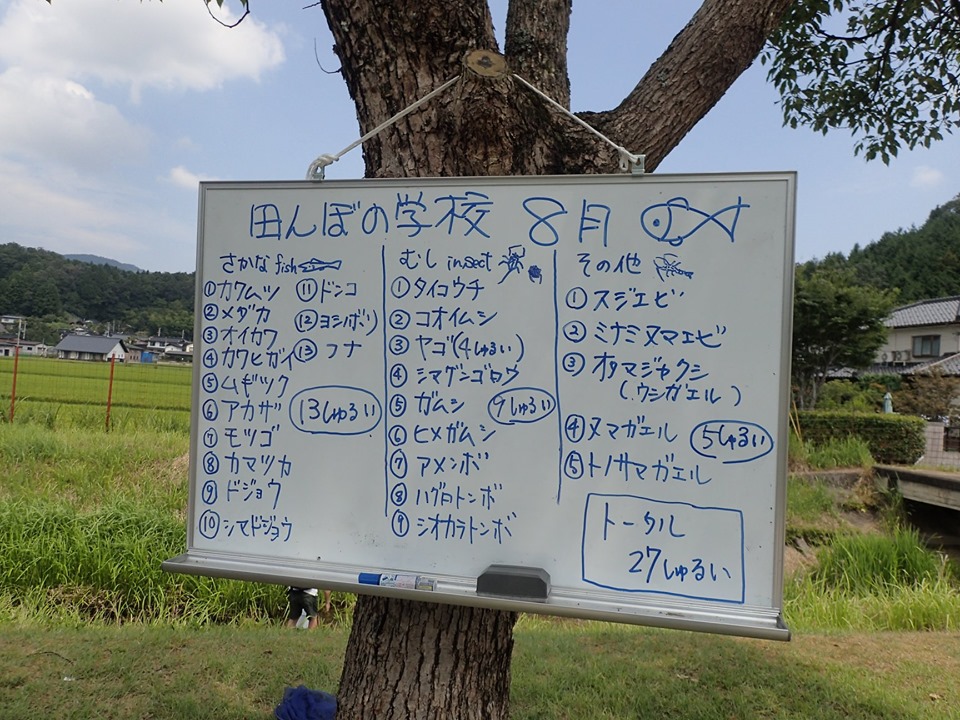 田んぼの学校 8月
さかな fish
①カワムツ
②メダカ
③オイカワ
④カワヒガイ
⑤ムギツク
⑥アカザ
⑦モツゴ
⑧カマツカ
⑨ドジョウ
⑩シマドジョウ
⑪ドンコ
⑫ヨシボリ
⑬フナ
13しゅるい
むし insect
①タイコウチ
②コオイムシ
③ヤゴ(4しゅるい)
④シマゲンゴロウ
⑤ガムシ
⑥ヒメガムシ
⑦アメンボ
⑧ハグロトンボ
⑨シオカラトンボ
9しゅるい
その他
①スジエビ
②ミナミヌマエビ
③オタマジャクシ
(ウシガエル)
④ヌマガエル
⑤トノサマガエル
5しゅるい
トータル
27しゅるい